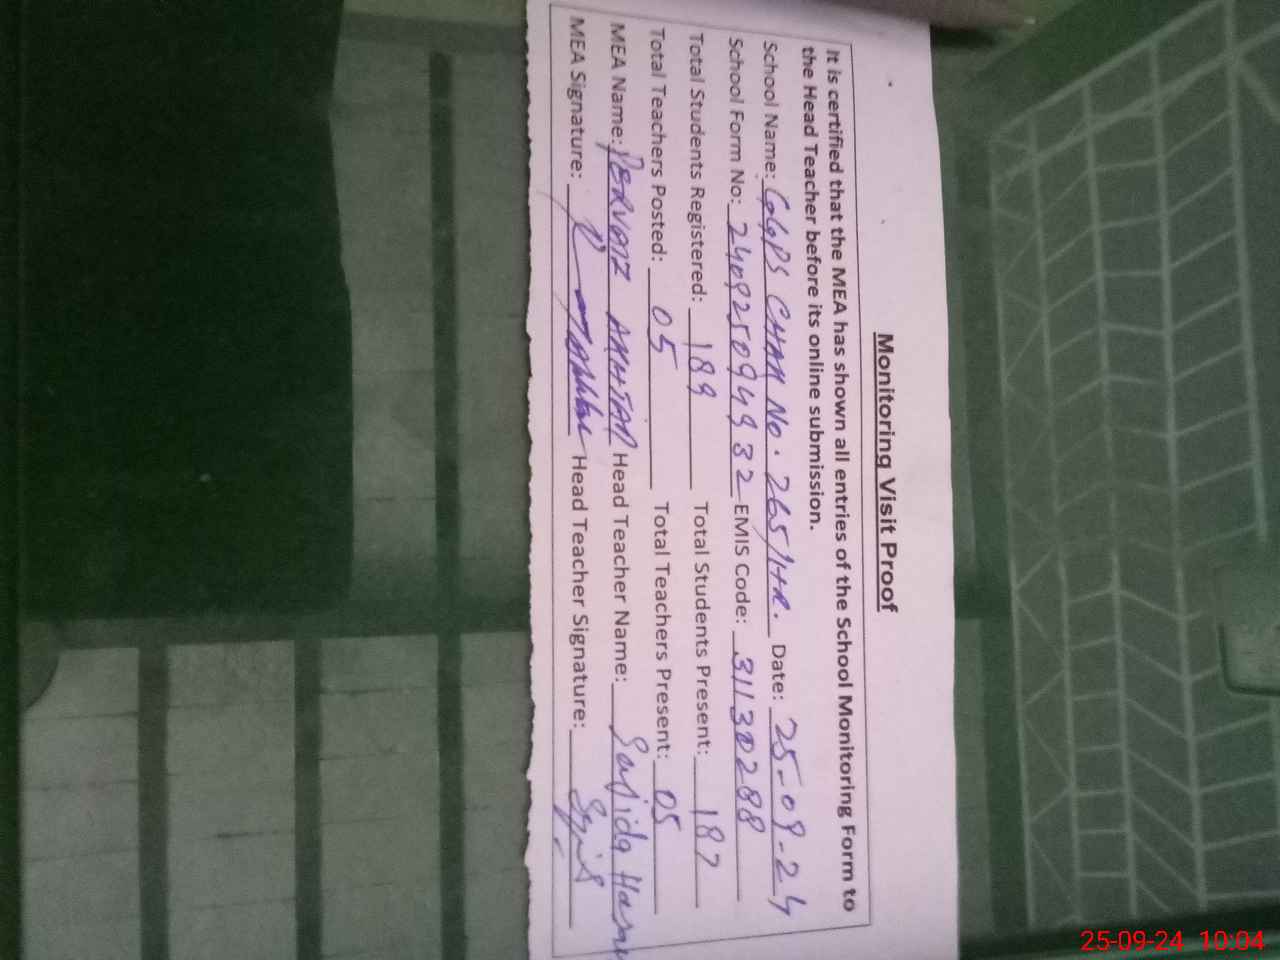 Monitoring Visit Proof
It is certified that the MEA has shown all entries of the School Monitoring Form to
the Head Teacher before its online submission.
School Name: GGPS CHAK No. 265/HR. Date: 25-09-24
School Form No: 240925094932 EMIS Code: 31130288
Total Students Registered: 189 Total Students Present: 187
Total Teachers Posted: 05 Total Teachers Present: 05
MEA Name: PERVAIZ AKHTAR Head Teacher Name: Sajida
MEA Signature: Head Teacher Signature:
25-09-24 10:04